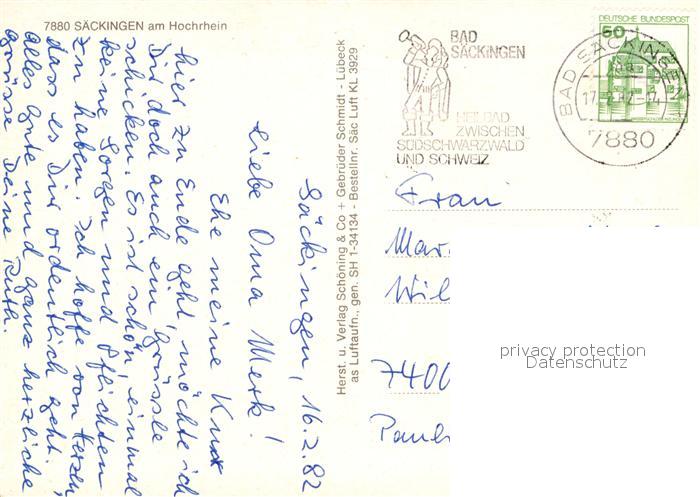 7880 SÄCKINGEN am Hochrhein
Säckingen, 16.2.82
Liebe Oma Merk!
Ehe meine Kur
hier zu Ende geht, möchte ich
Dir doch auch ein Grüssle
schicken. Es ist schön, einmal
keine Sorgen und Pflichten
zu haben. Ich hoffe von Herzen,
dass es Dir ordentlich geht.
Alles Gute und ganz herzliche
Grüsse Deine Ruth.
Herst. u. Verlag Schöning & Co + Gebrüder Schmidt - Lübeck
as Luftaufn., gen. SH 1-34134 - Bestellnr. Säc Luft KL 3929
BAD
SÄCKINGEN
HEILBAD
ZWISCHEN
SÜDSCHWARZWALD
UND SCHWEIZ
DEUTSCHE BUNDESPOST
50
BAD SÄCKINGEN
7880
Frau
Mar
Wil
7400
privacy protection
Datenschutz